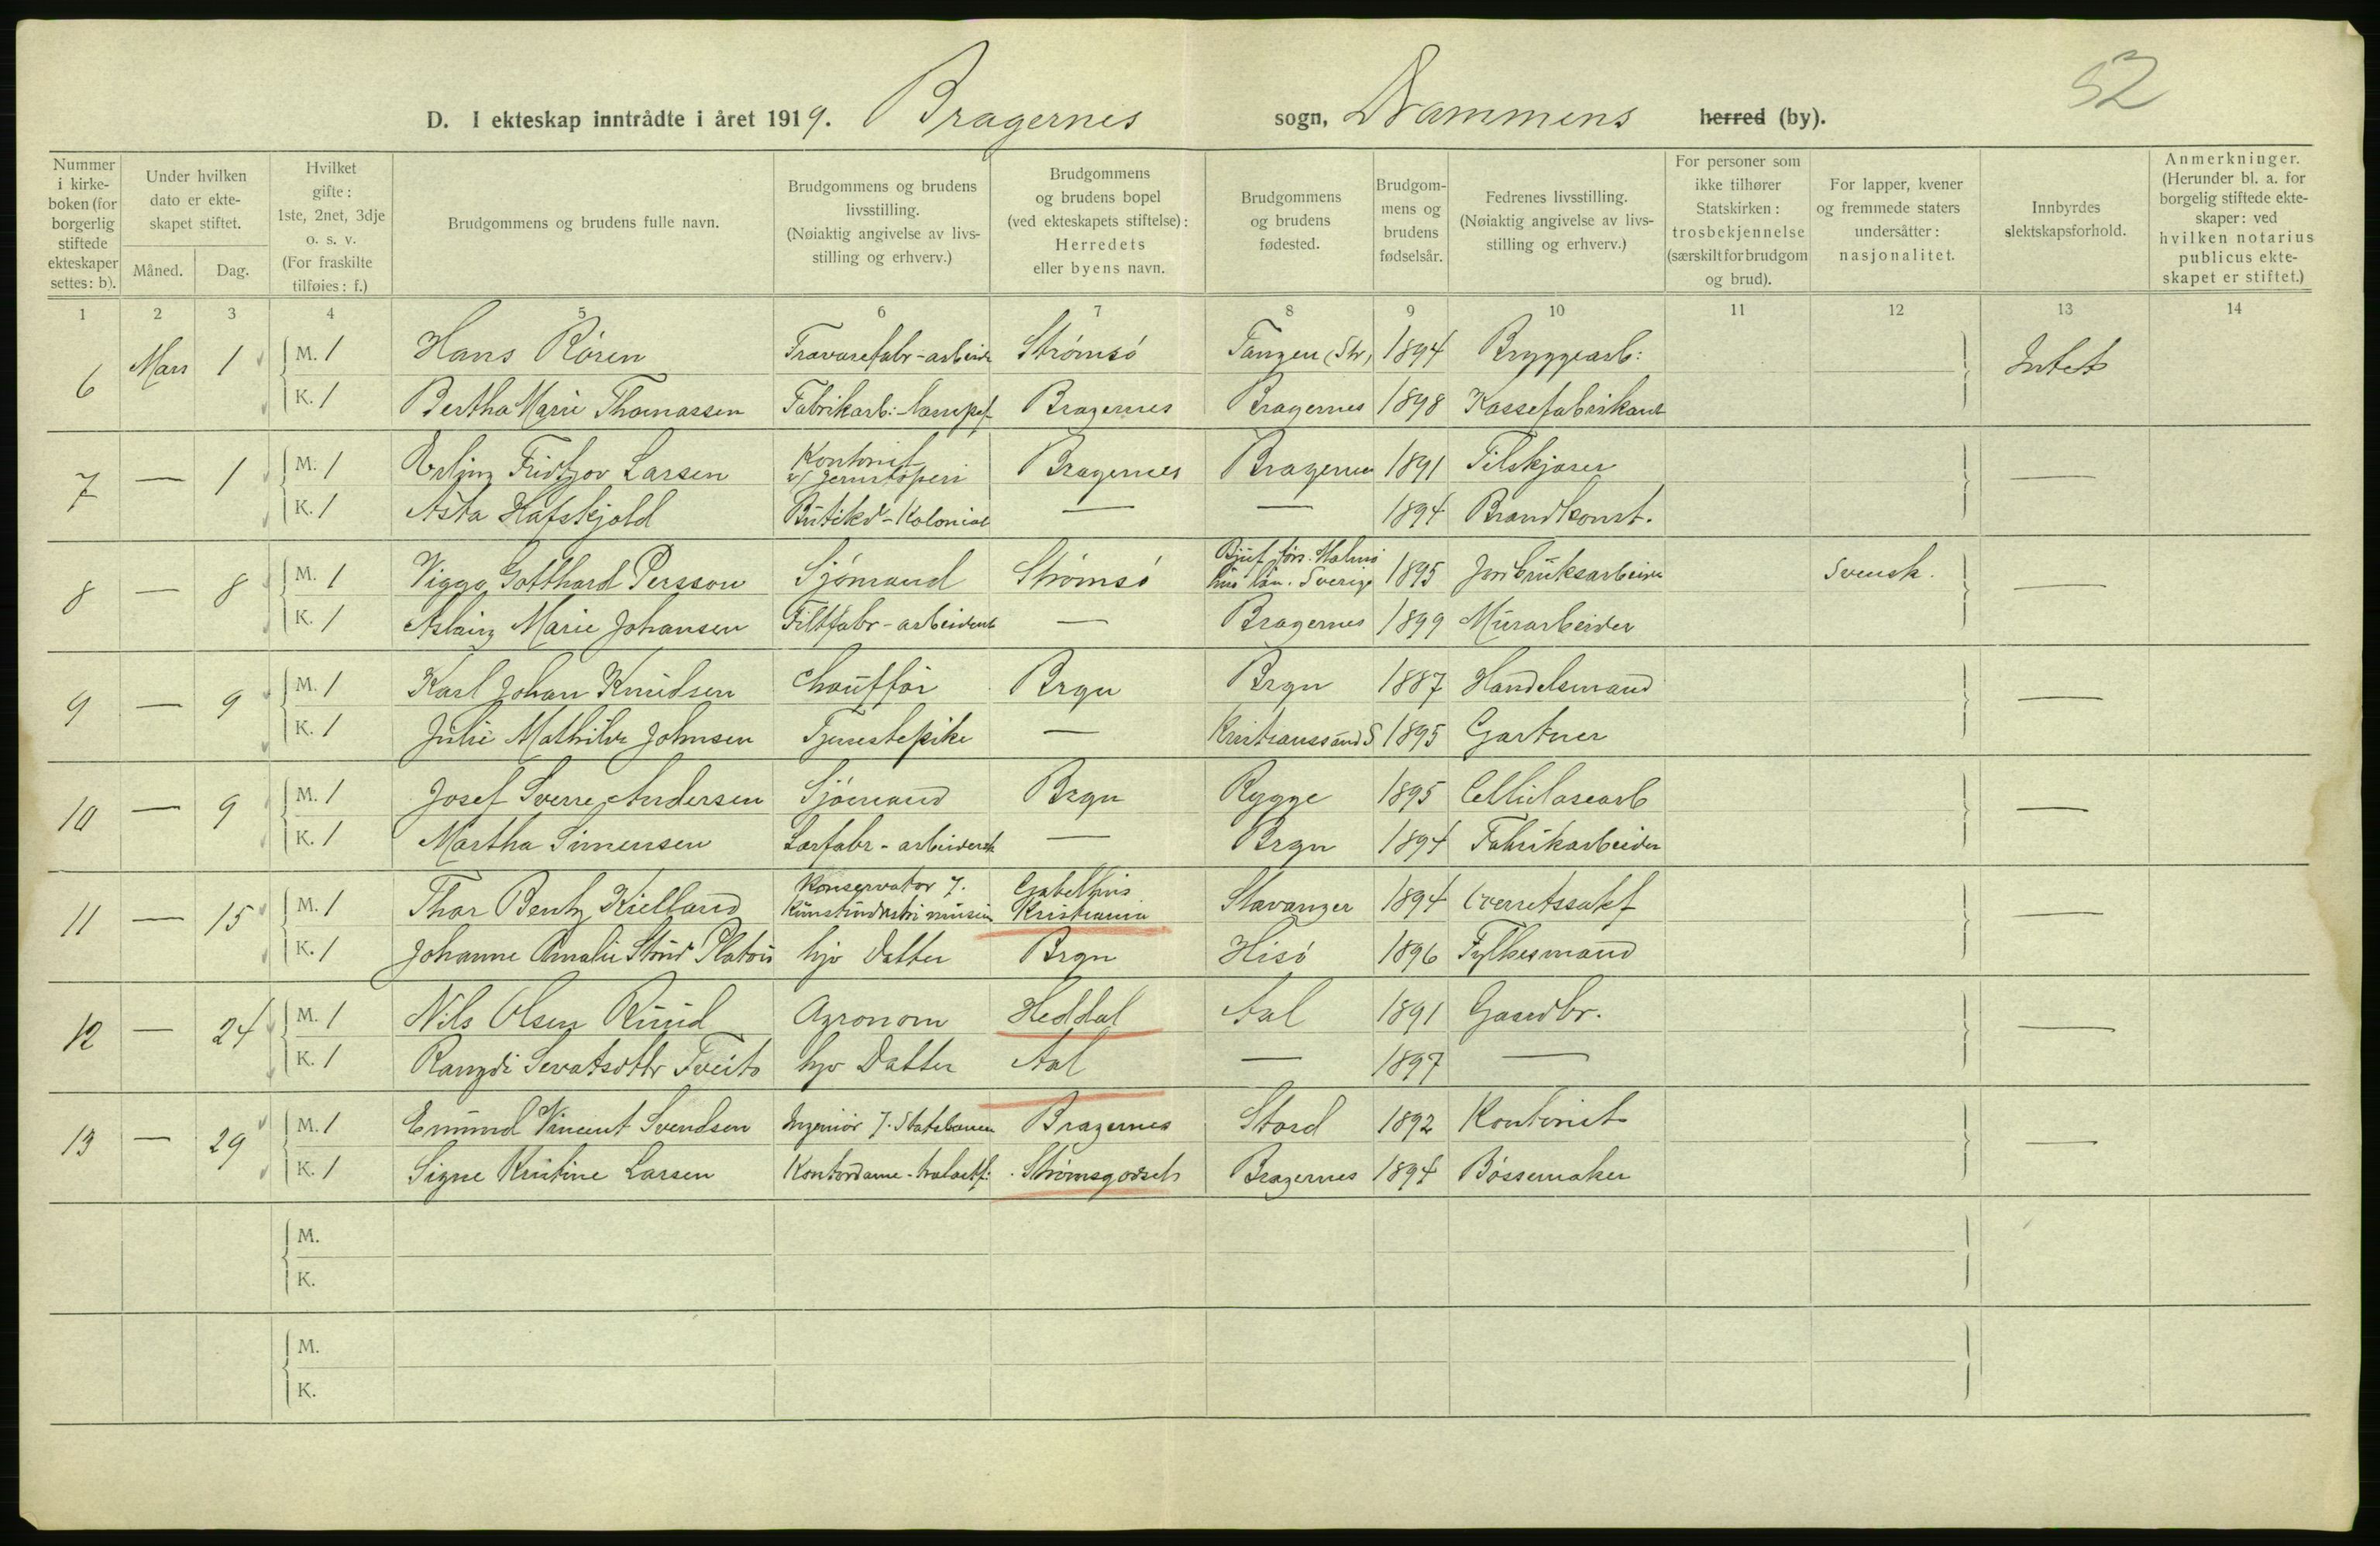 52
D. I ekteskap inntrådte i året 1919. Bragernes sogn, Drammens herred (by).
Nummer i kirkeboken (for borgerlig stiftede ekteskaper settes: b).
Under hvilken dato er ekteskapet stiftet.
Måned. Dag.
Hvilket gifte: 1ste, 2net, 3dje o. s. v. (For fraskilte tilføies: f.)
Brudgommens og brudens fulle navn.
Brudgommens og brudens livsstilling. (Nøiaktig angivelse av livsstilling og erhverv.)
Brudgommens og brudens bopel (ved ekteskapets stiftelse): Herredets eller byens navn.
Brudgommens og brudens fødested.
Brudgommens og brudens fødselsår.
Fedrenes livsstilling. (Nøiaktig angivelse av livsstilling og erhverv.)
For personer som ikke tilhører Statskirken: trosbekjennelse (særskilt for brudgom og brud).
For lapper, kvener og fremmede staters undersåtter: nasjonalitet.
Innbyrdes slektskapsforhold.
Anmerkninger. (Herunder bl. a. for borgelig stiftede ekteskaper: ved hvilken notarius publicus ekteskapet er stiftet.)
1 2 3 4 5 6 7 8 9 10 11 12 13 14
6 Mars 1 M. 1 Hans Rören Travarefabr-arbeider Strømsö Tangen (Str) 1894 Bryggearb: Intet
K. 1 Bertha Marie Thomassen Fabrikarb: Lampef Bragernes Bragernes 1898 Kassefabrikant
7 — 1 M. 1 Erling Fridtjov Larsen Kontorist v/ Jernstøperi Bragernes Bragernes 1891 Tilskjærer —
K. 1 Asta Hafskjold Butikd - Kolonial — — 1894 Brandkonst.
8 — 8 M. 1 Viggo Gotthard Persson Sjömand Strömsö Bjuf förs. Malmöhus län. Sverige 1895 Jordbruksarbeider Svensk. —
K. 1 Aslaug Marie Johansen Filtfabr-arbeiderske — Bragernes 1899 Murarbeider
9 — 9 M. 1 Karl Johan Knudsen Chaufför Brgn Brgn 1887 Handelsmand —
K. 1 Julie Mathilde Johnsen Tjenestepike — Kristianssand S 1895 Gartner
10 — 9 M. 1 Josef Sverre Andersen Sjömand Brgn Rygge 1895 Cellulosearb —
K. 1 Martha Simensen Lærfabr-arbeiderske — Brgn 1894 Fabrikarbeider
11 — 15 M. 1 Thor Bentz Kielland Konservator v. Kunstindustrimuseum Gabelshus Kristiania Stavanger 1894 Overretssakf —
K. 1 Johanne Amalie Stönd Platou hjv Datter Brgn Hisö 1896 Fylkesmand
12 — 24 M. 1 Nils Olsen Ruud Agronom Heddal Aal 1891 Gaardbr. —
K. 1 Rangdi Sevatsdttr Tveito hjv Datter Aal — 1897 —
13 — 29 M. 1 Emund Vincent Svendsen Ingeniör v. Statsbanen Bragernes Stord 1892 Kontorist —
K. 1 Signe Kristine Larsen Kontordame - Strömsgodset Bragernes 1894 Bössemaker
M.
K.
M.
K.